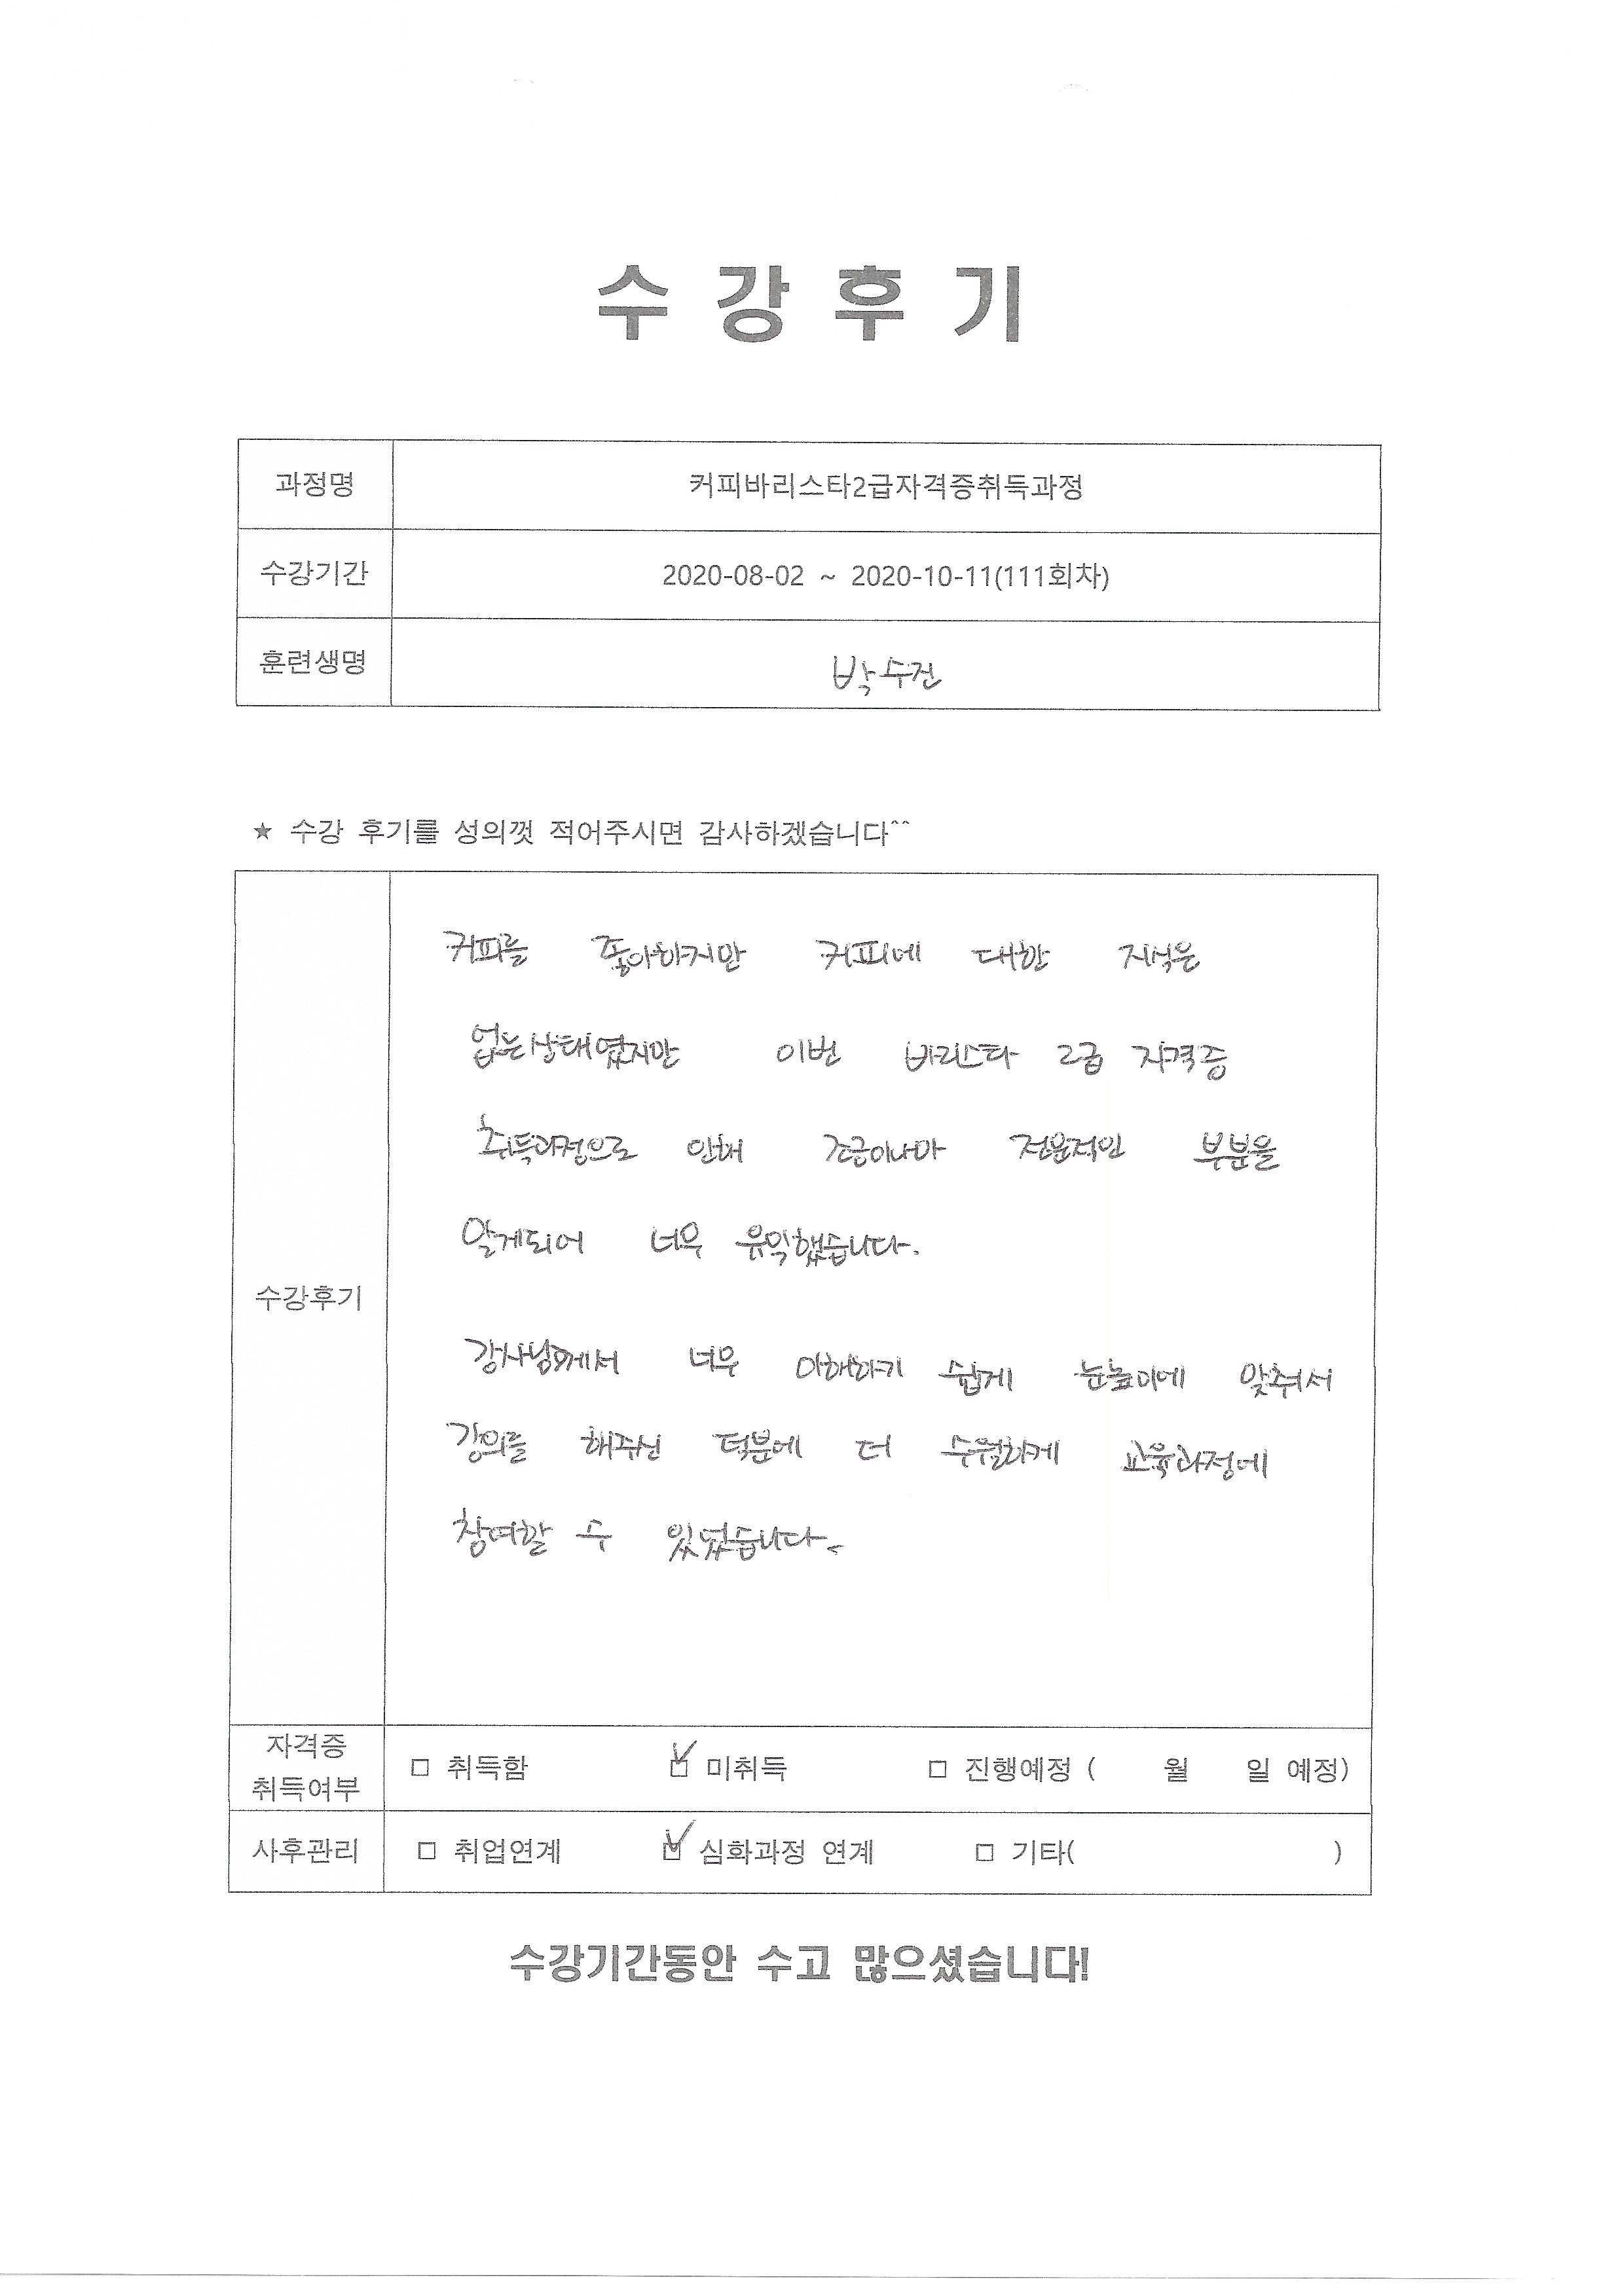 수강후기
과정명 커피바리스타2급자격증취득과정
수강기간 2020-08-02 ~ 2020-10-11(111회차)
훈련생명 박수진
★ 수강 후기를 성의껏 적어주시면 감사하겠습니다^^
커피를 좋아하지만 커피에 대한 지식은
없는상태였지만 이번 바리스타 2급 자격증
취득과정으로 인해 조금이나마 전문적인 부분을
알게되어 너무 유익했습니다.
수강후기
강사님께서 너무 이해하기 쉽게 눈높이에 맞춰서
강의를 해주신 덕분에 더 수월하게 교육과정에
참여할 수 있었습니다.
자격증
취득여부 □ 취득함 ☑ 미취득 □ 진행예정 ( 월 일 예정)
사후관리 □ 취업연계 ☑ 심화과정 연계 □ 기타( )
수강기간동안 수고 많으셨습니다!